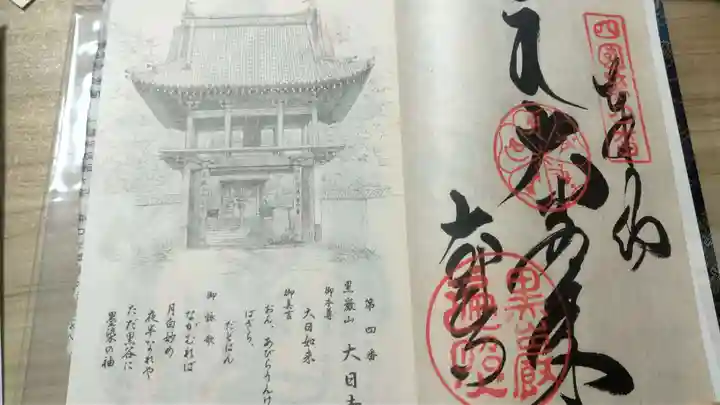 四国第四番
奉拝
大日如来
大日寺
黒巌山
遍照院
第四番
黒巌山 大日寺
御本尊
大日如来
御真言
おん、あびらうんけ
ばざら、
だどばん
御詠歌
ながむれば
月白妙の
夜半なれや
ただ黒谷に
墨染の袖